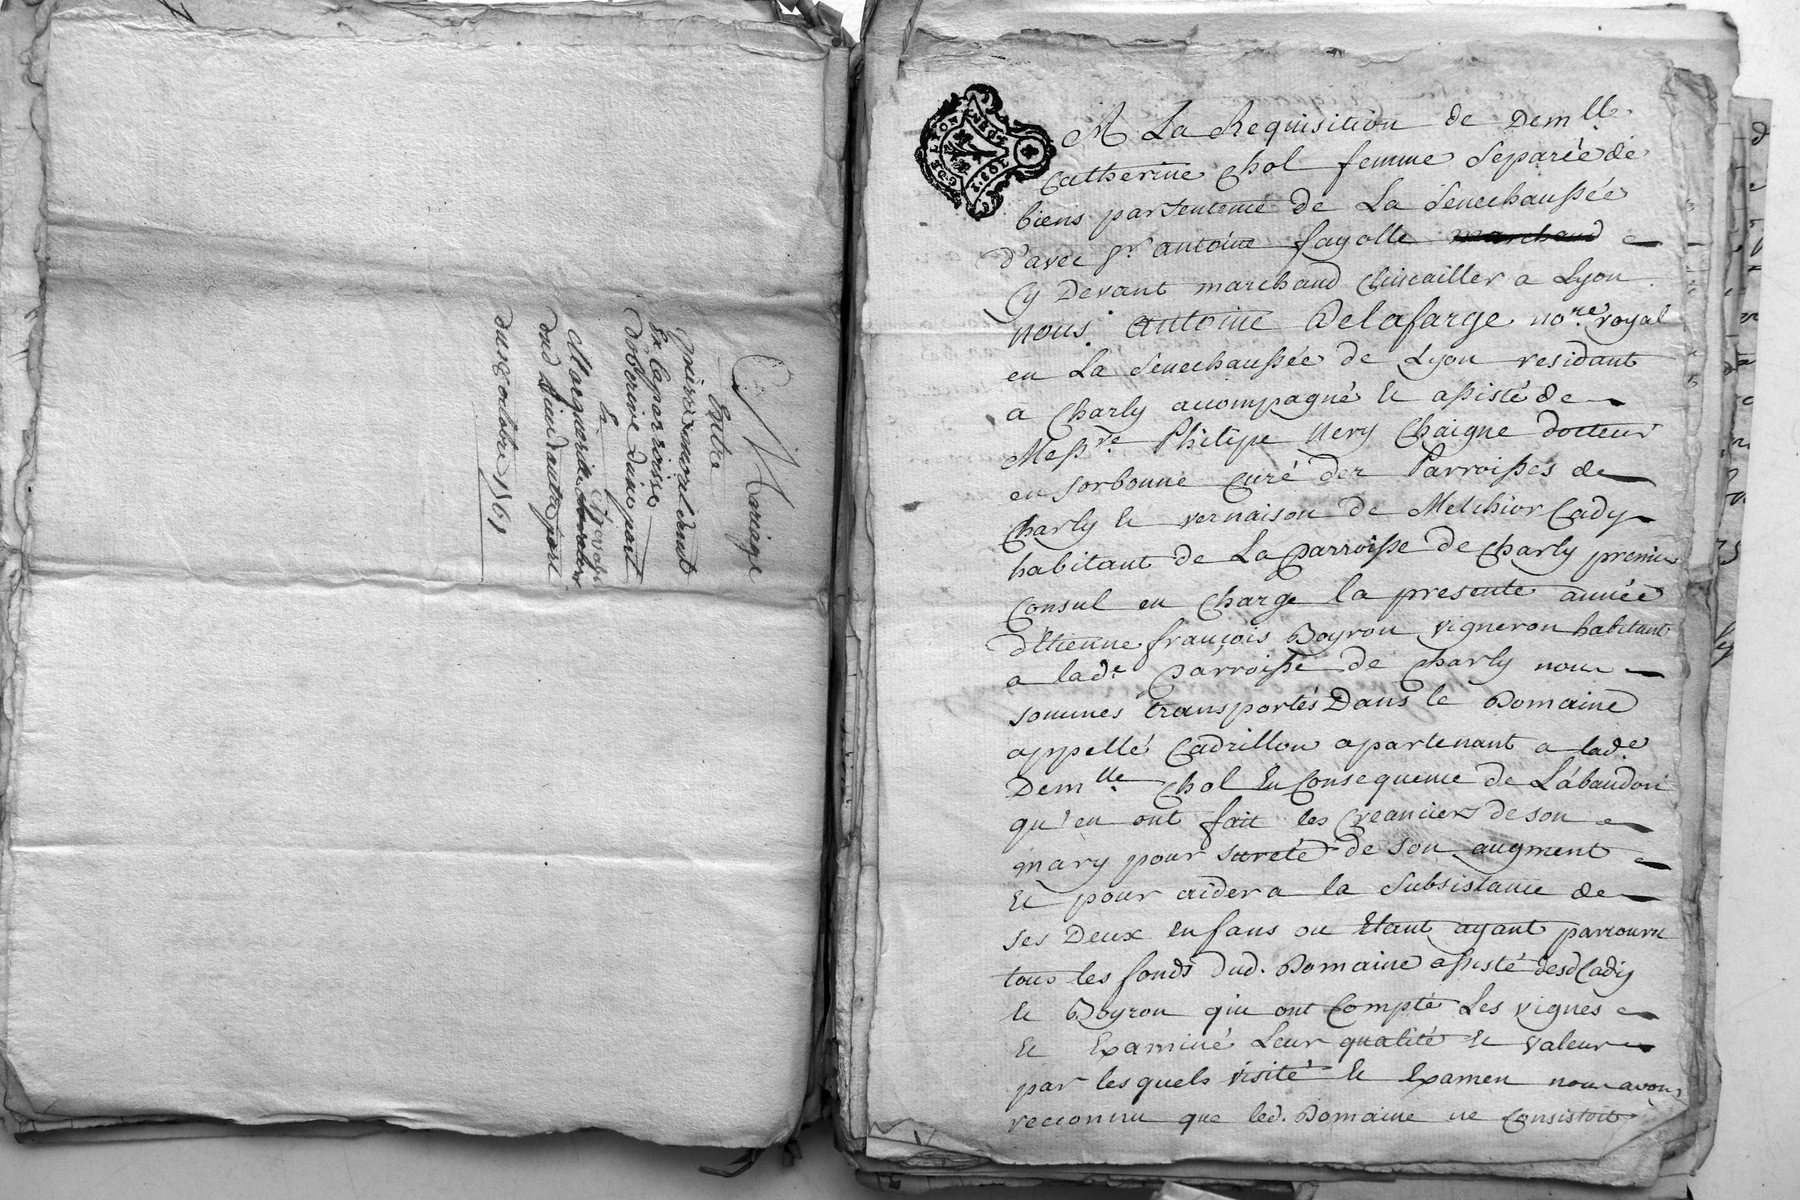 Mariage
Entre
du 25 octobre 1761
G. DE LYON
A La Requisition de Demlle
Catherine Chol femme Separée de
biens par Sentence de La Senechaussée
d'avec Sr antoine fayolle marchand
Cy Devant marchand Clincailler a Lyon
nous Antoine Delafarge nore royal
en La Senechaussée de Lyon residant
a Charly accompagné et assisté de
Messre Philipe Nery Chaigne docteur
en Sorbonne Curé des Parroisses de
Charly et vernaison de Melchior Cady
habitant de La Parroisse de Charly premier
Consul en Charge la presente année
d'Etienne françois Boyron vigneron habitant
a lade Parroisse de Charly nous
sommes transportés Dans le Domaine
appellé Cadrillon apartenant a lade
Demlle Chol En Consequence de L'abandon
qu'en ont fait les Creanciers de son
mary pour sureté de son augment
Et pour aider a la Subsistance de
ses Deux Enfans ou Etant ayant parcouru
tous les fonds dud. Domaine assisté desd Cady
et Boyron qui ont Compté Les vignes
Et Examiné Leur qualité et valeur
par lesquels visité et Examen nous avons
reconnu que led. Domaine ne Consistoit